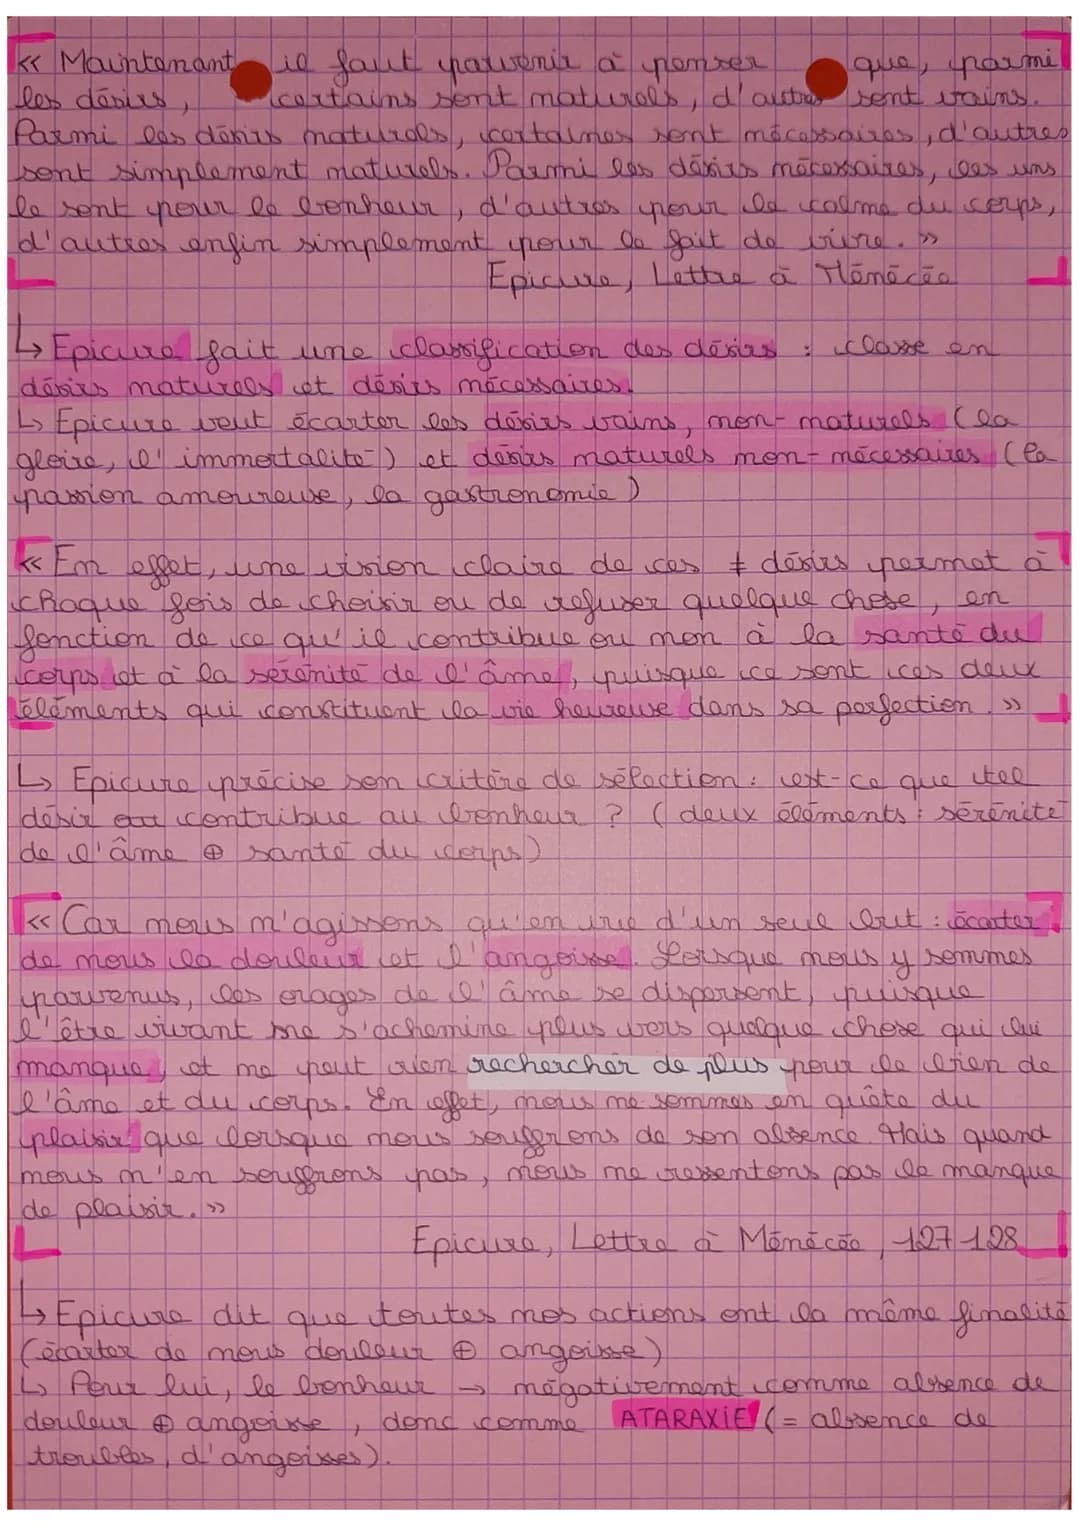 « Maintenant il faut parvenir à penser que, parmi
les désirs, certains sont naturels, d'autres sont vains.
Parmi les désirs naturels, certaines sont nécessaires, d'autres
sont simplement naturels. Parmi les désirs nécessaires, les uns
le sont pour le bonheur, d'autres pour le calme du corps,
d'autres enfin simplement pour le fait de vivre. »
Epicure, Lettre à Ménécée
↳ Epicure fait une classification des désirs : classe en
désirs naturels et désirs nécessaires.
↳ Epicure veut écarter les désirs vains, non-naturels (la
gloire, l'immortalité) et désirs naturels non-nécessaires (la
passion amoureuse, la gastronomie)
« En effet, une vision claire de ces ≠ désirs permet à
chaque fois de choisir ou de refuser quelque chose, en
fonction de ce qu'il contribue ou non à la santé du
corps et à la sérénité de l'âme, puisque ce sont ces deux
éléments qui constituent la vie heureuse dans sa perfection. »
↳ Epicure précise son critère de sélection : est-ce que tel
désir contribue au bonheur ? (deux éléments : sérénité
de l'âme ⊕ santé du corps)
« Car nous n'agissons qu'en vue d'un seul but : écarter
de nous la douleur et l'angoisse. Lorsque nous y sommes
parvenus, les orages de l'âme se dispersent, puisque
l'être vivant ne s'achemine plus vers quelque chose qui lui
manque, et ne peut rien rechercher de plus pour le bien de
l'âme et du corps. En effet, nous ne sommes en quête du
plaisir que lorsque nous souffrons de son absence. Mais quand
nous n'en souffrons pas, nous ne ressentons pas le manque
de plaisir. »
Epicure, Lettre à Ménécée, 127-128
↳ Epicure dit que toutes nos actions ont la même finalité
(écarter de nous douleur ⊕ angoisse)
↳ Pour lui, le bonheur → négativement comme absence de
douleur ⊕ angoisse, donc comme ATARAXIE (= absence de
troubles, d'angoisses).